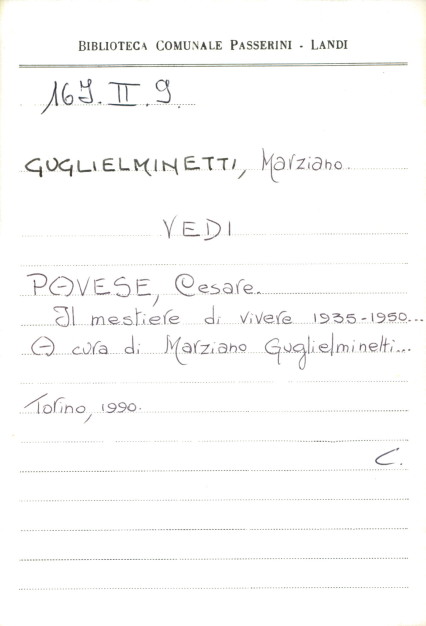 BIBLIOTECA COMUNALE PASSERINI - LANDI
16J. II. 9.
GUGLIELMINETTI, Marziano.
VEDI
PAVESE, Cesare.
Il mestiere di vivere 1935-1950...
A cura di Marziano Guglielminetti...
Torino, 1990.
C.